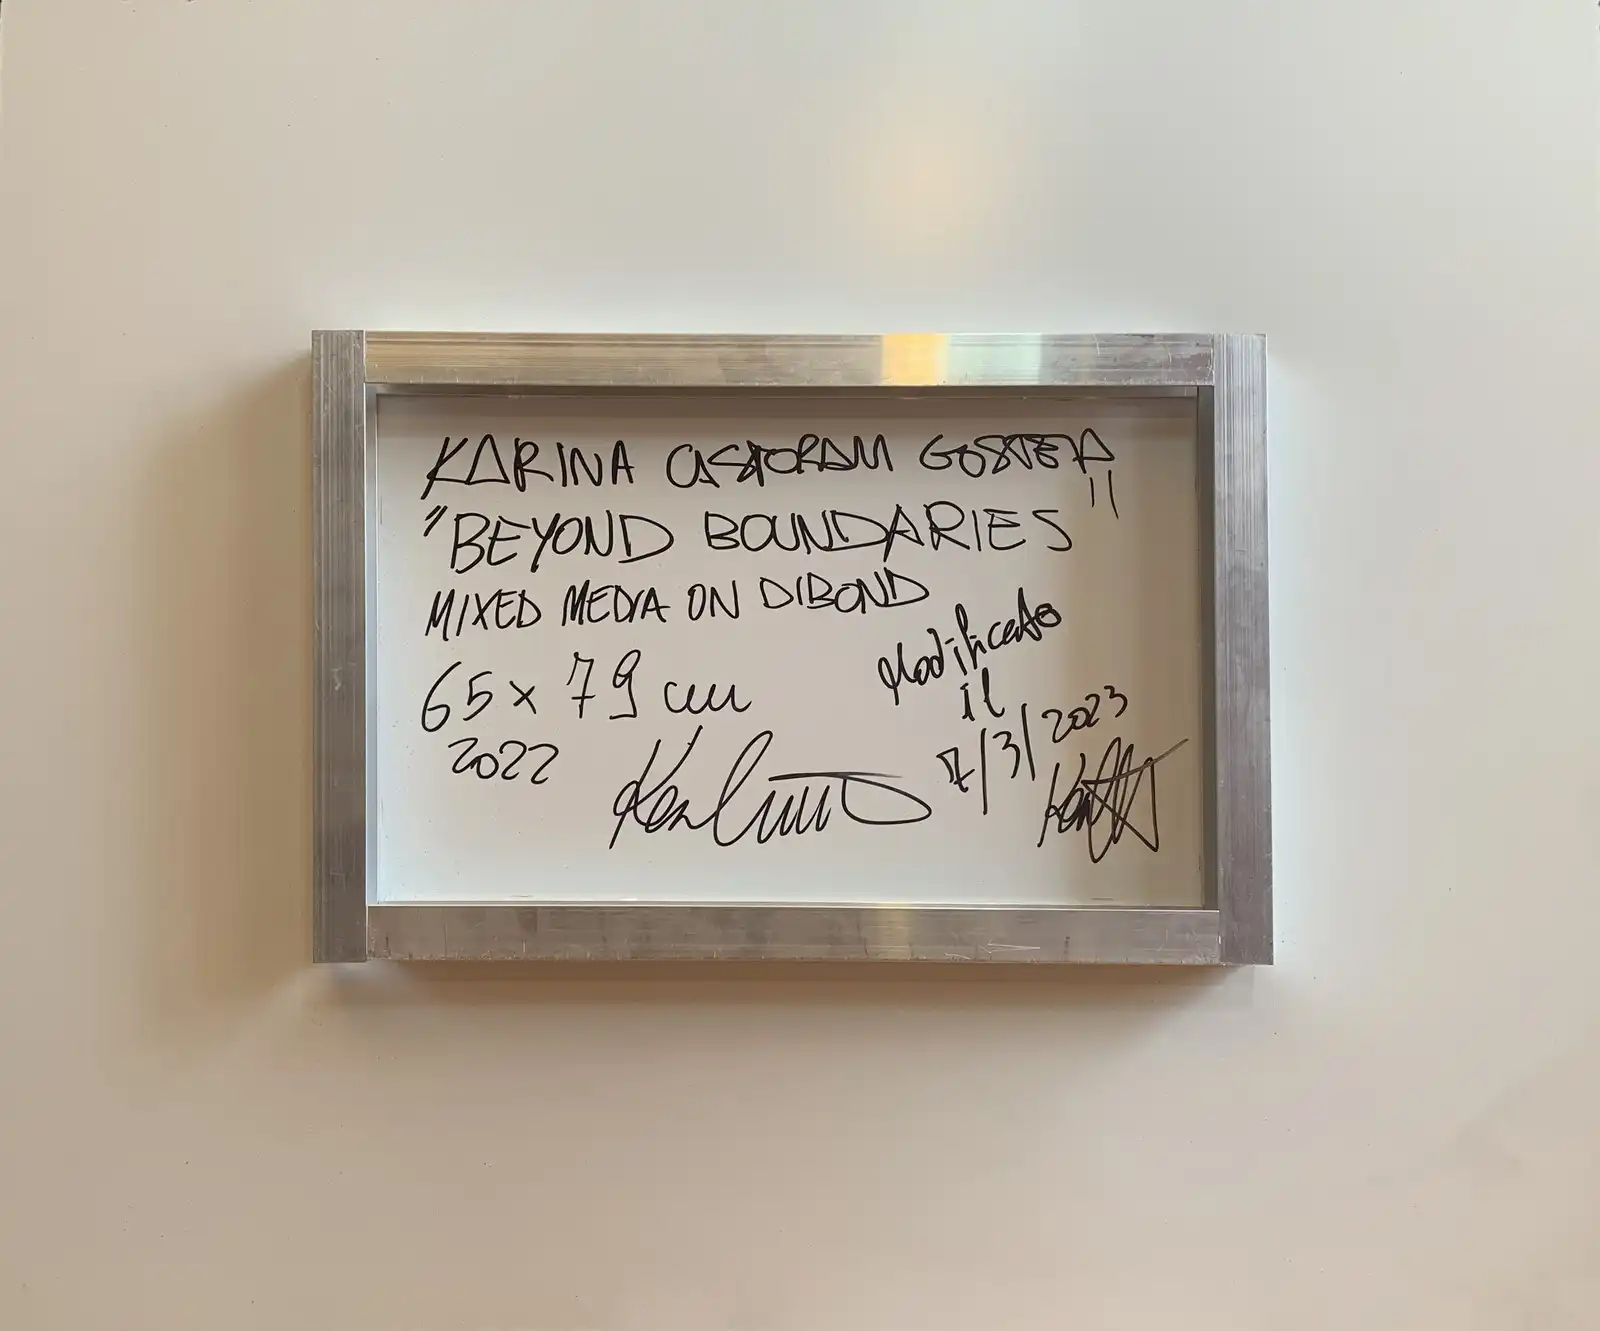 KARINA CASTORANI GOSTEVA
"BEYOND BOUNDARIES"
MIXED MEDIA ON DIBOND
65 x 79 cm
2022
Modificato
il
7/3/2023